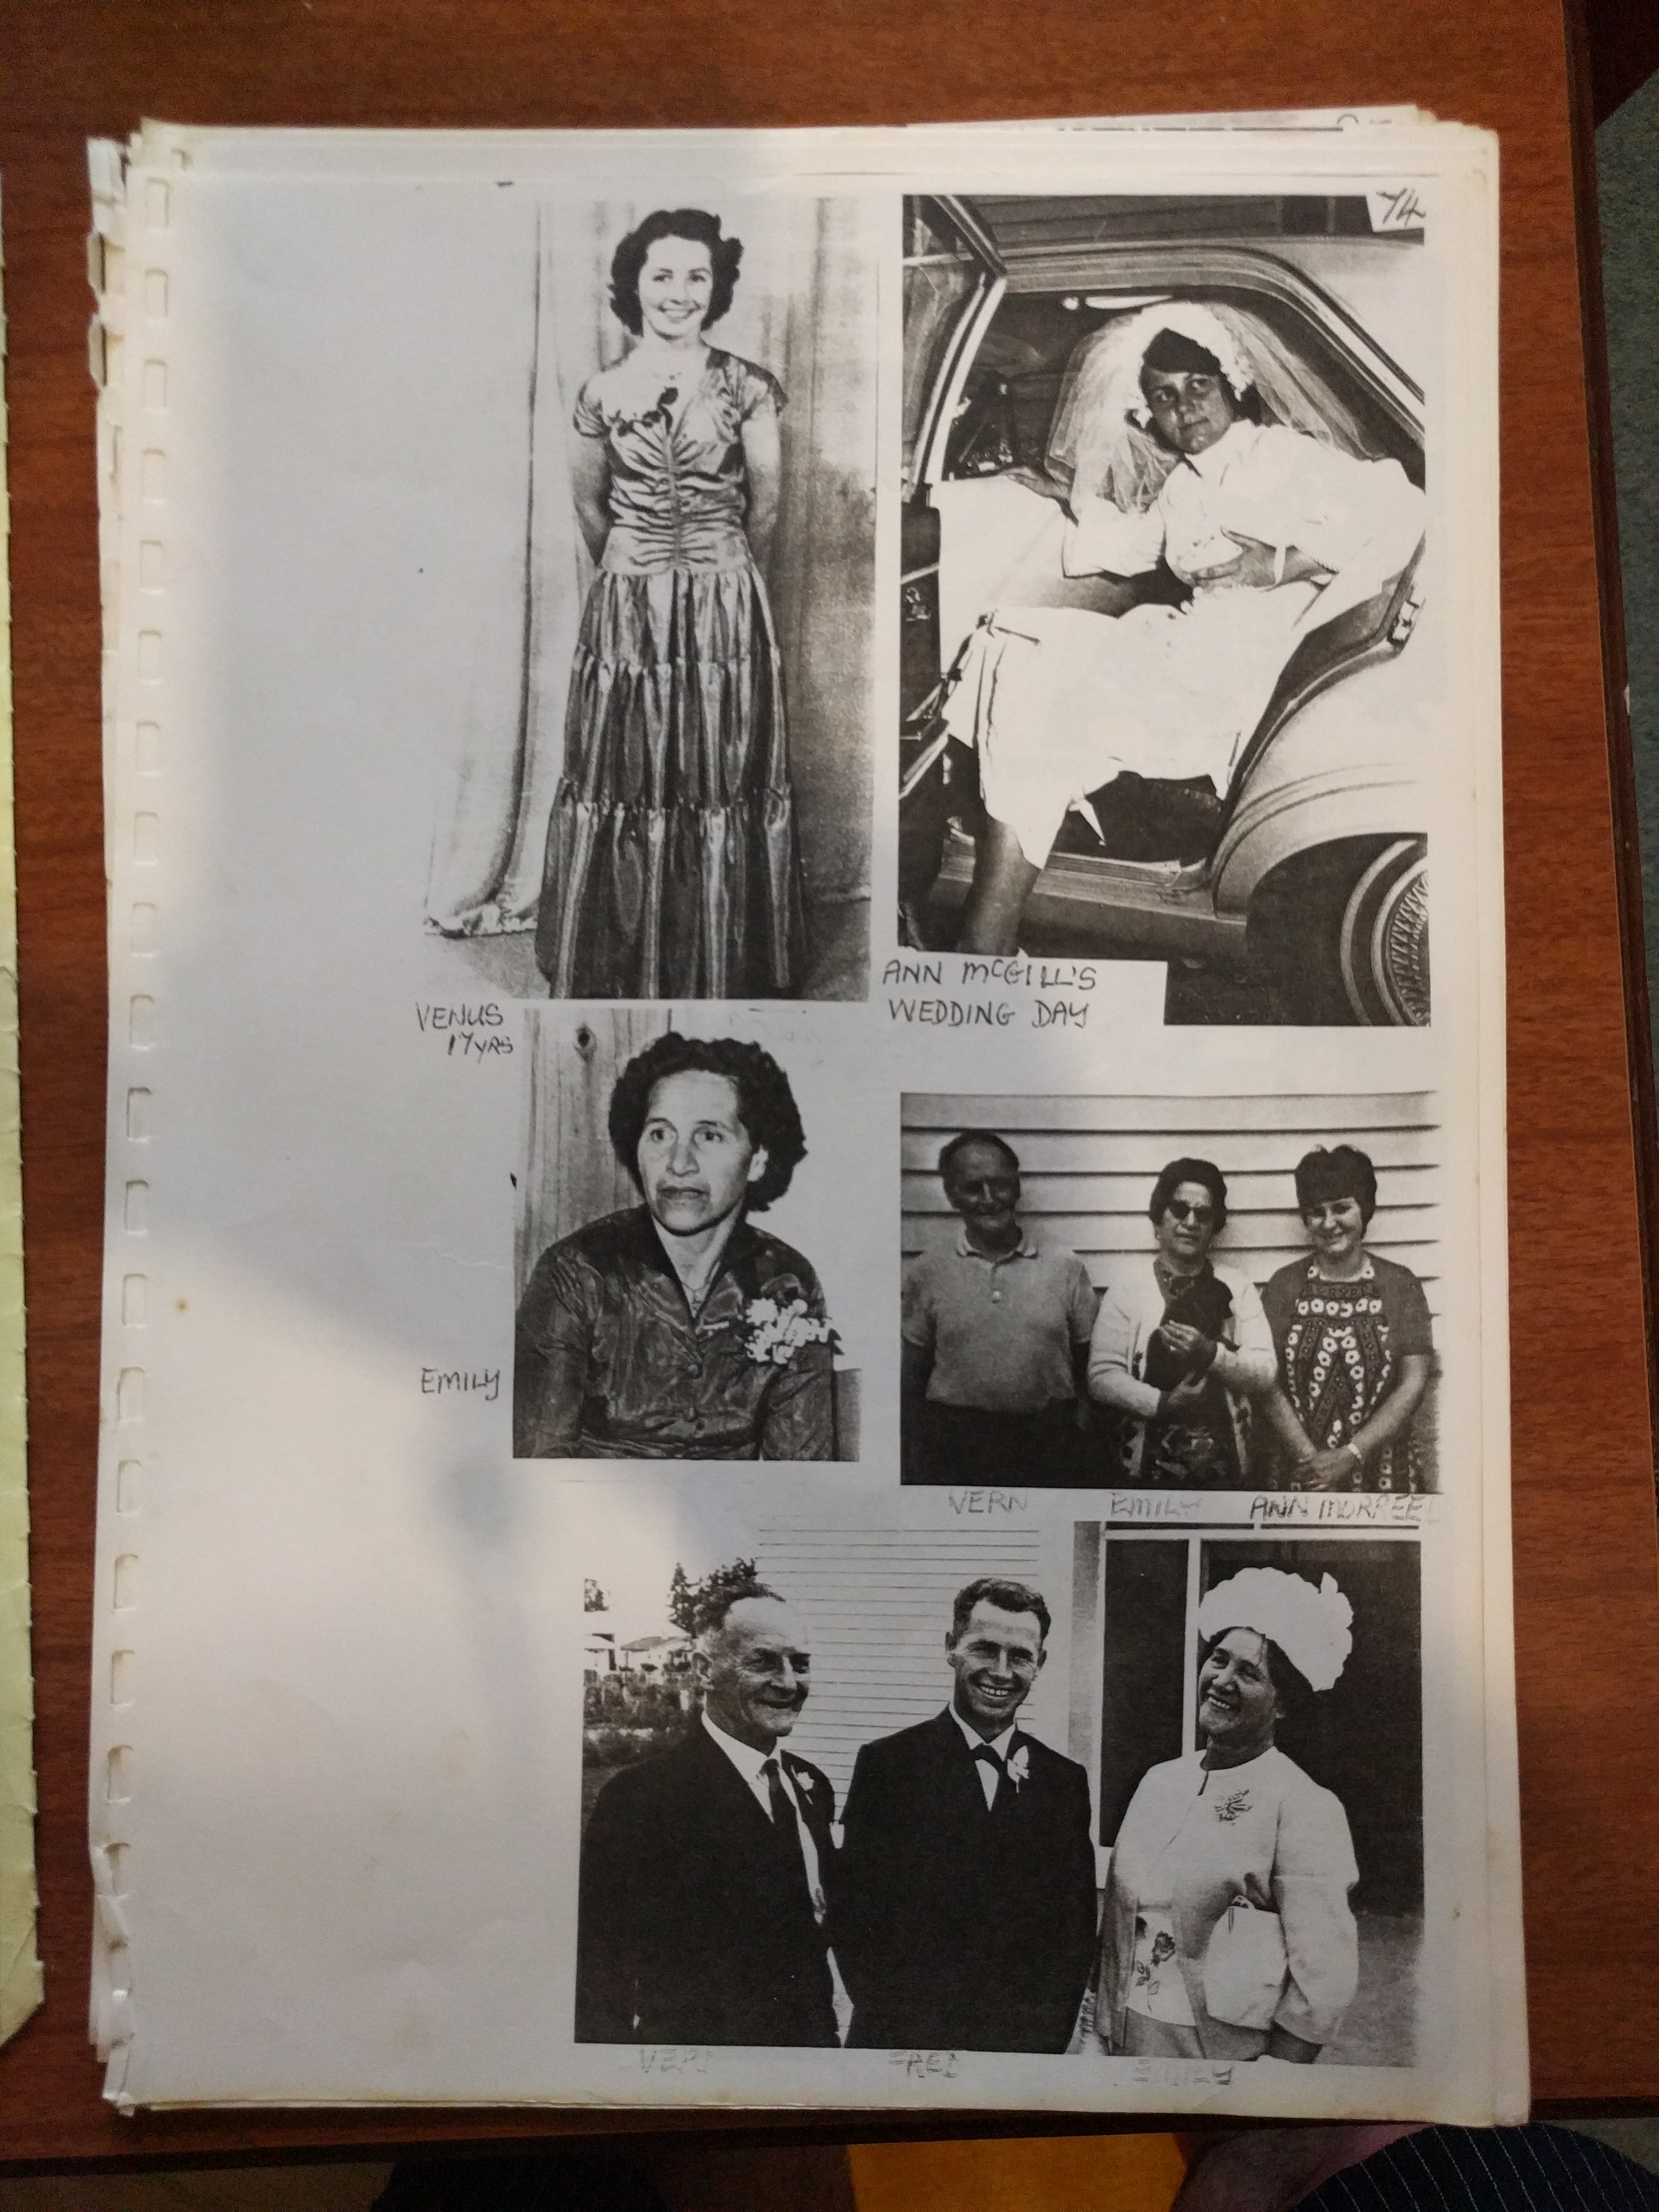 74
VENUS
17YRS
ANN McGILL'S
WEDDING DAY
EMILY
VERN EMILY ANN
VERN FRED EMILY